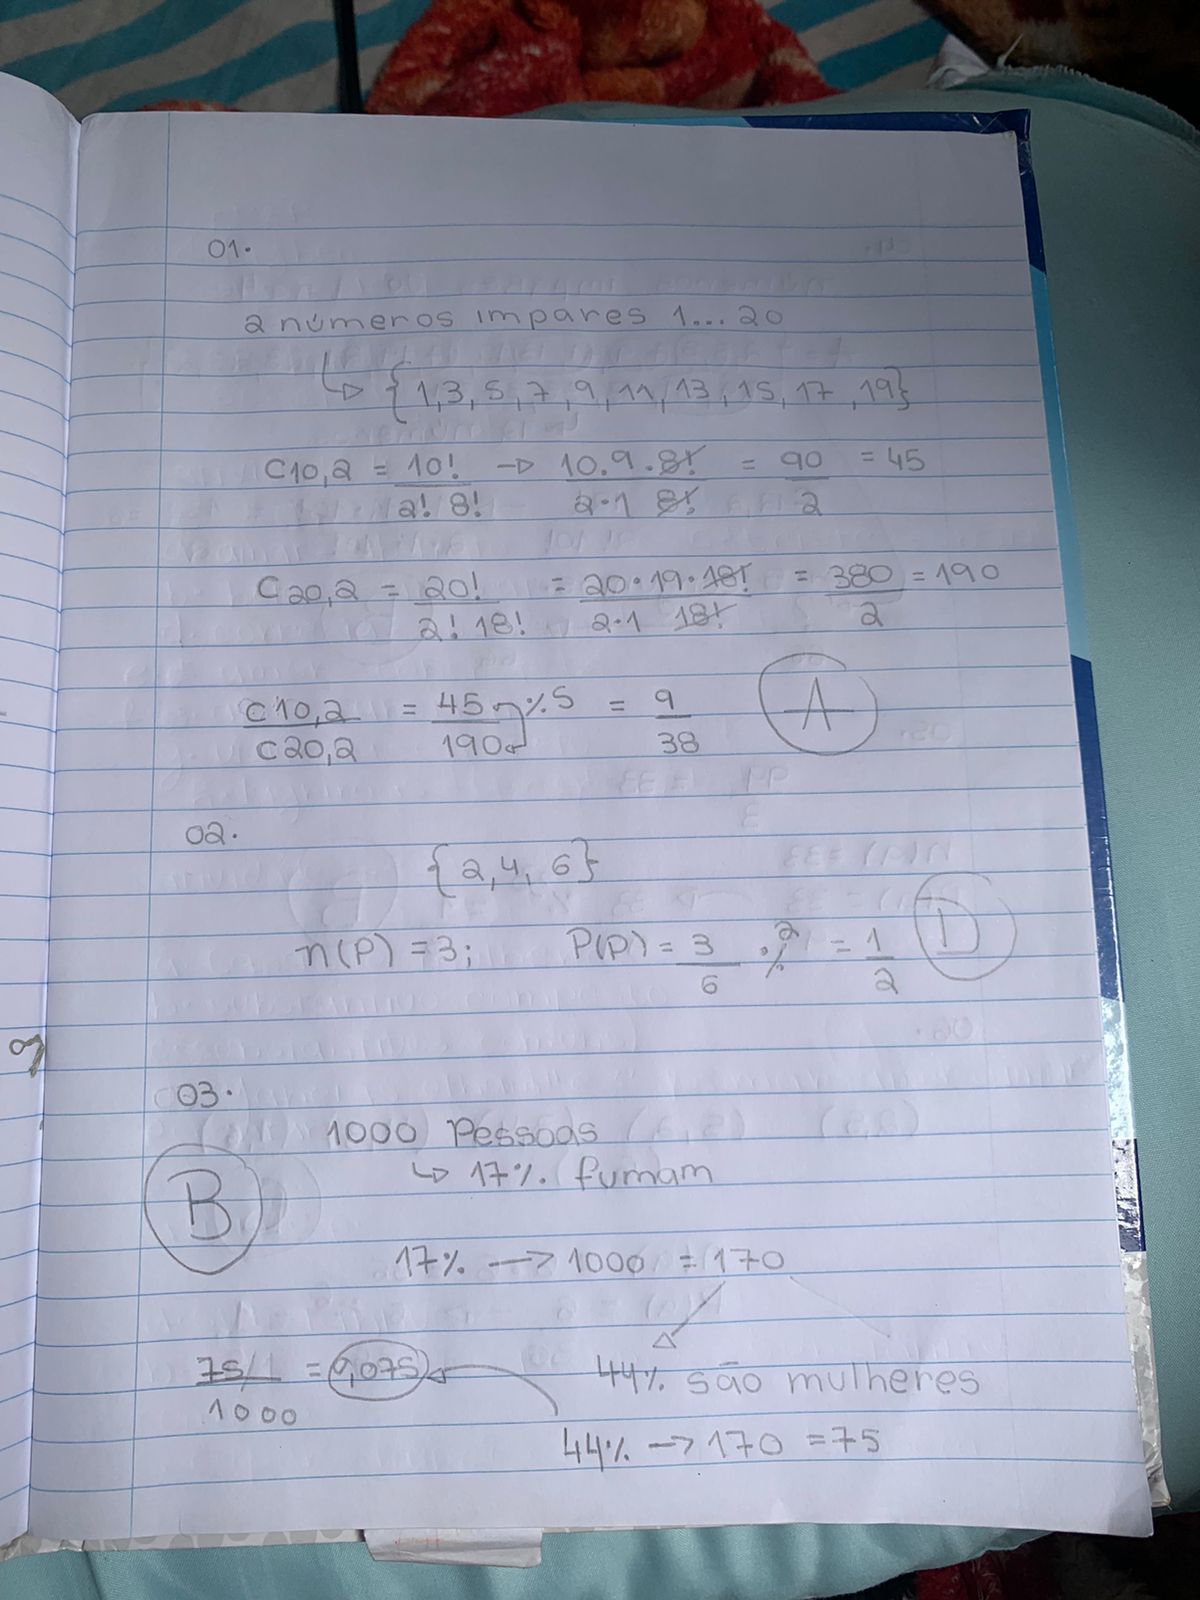 01.
2 números impares 1...20
↳ {1,3,5,7,9,11,13,15,17,19}
C10,2 = 10!/2! 8! → 10.9.8!/2.1 8! = 90/2 = 45
C20,2 = 20!/2! 18! = 20.19.18!/2.1 18! = 380/2 = 190
C10,2/C20,2 = 45/190 %5 = 9/38 A
02.
{2,4,6}
n(P) = 3; P(P) = 3/6 % 2 = 1/2 D
03.
1000 Pessoas
↳ 17% fumam
B
17% → 1000 = 170
75/1000 = 0,075 44% são mulheres
44% → 170 = 75